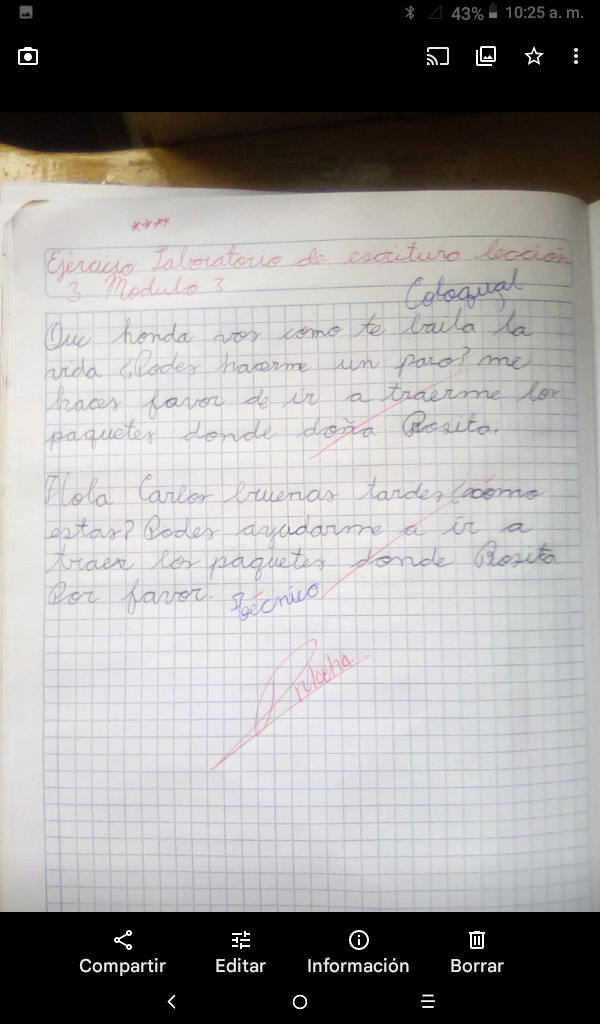 43% 10:25 a. m.
****
Ejercicio Laboratorio de escritura lección
3 Modulo 3
Coloquial
Que honda vos como te baila la
vida ¿Podes hacerme un paro? me
haces favor de ir a traerme los
paquetes donde doña Rosita.
Hola Carlos buenas tardes ¿como
estas? Podes ayudarme a ir a
traer los paquetes donde Rosita
Por favor. Técnico
Compartir Editar Información Borrar